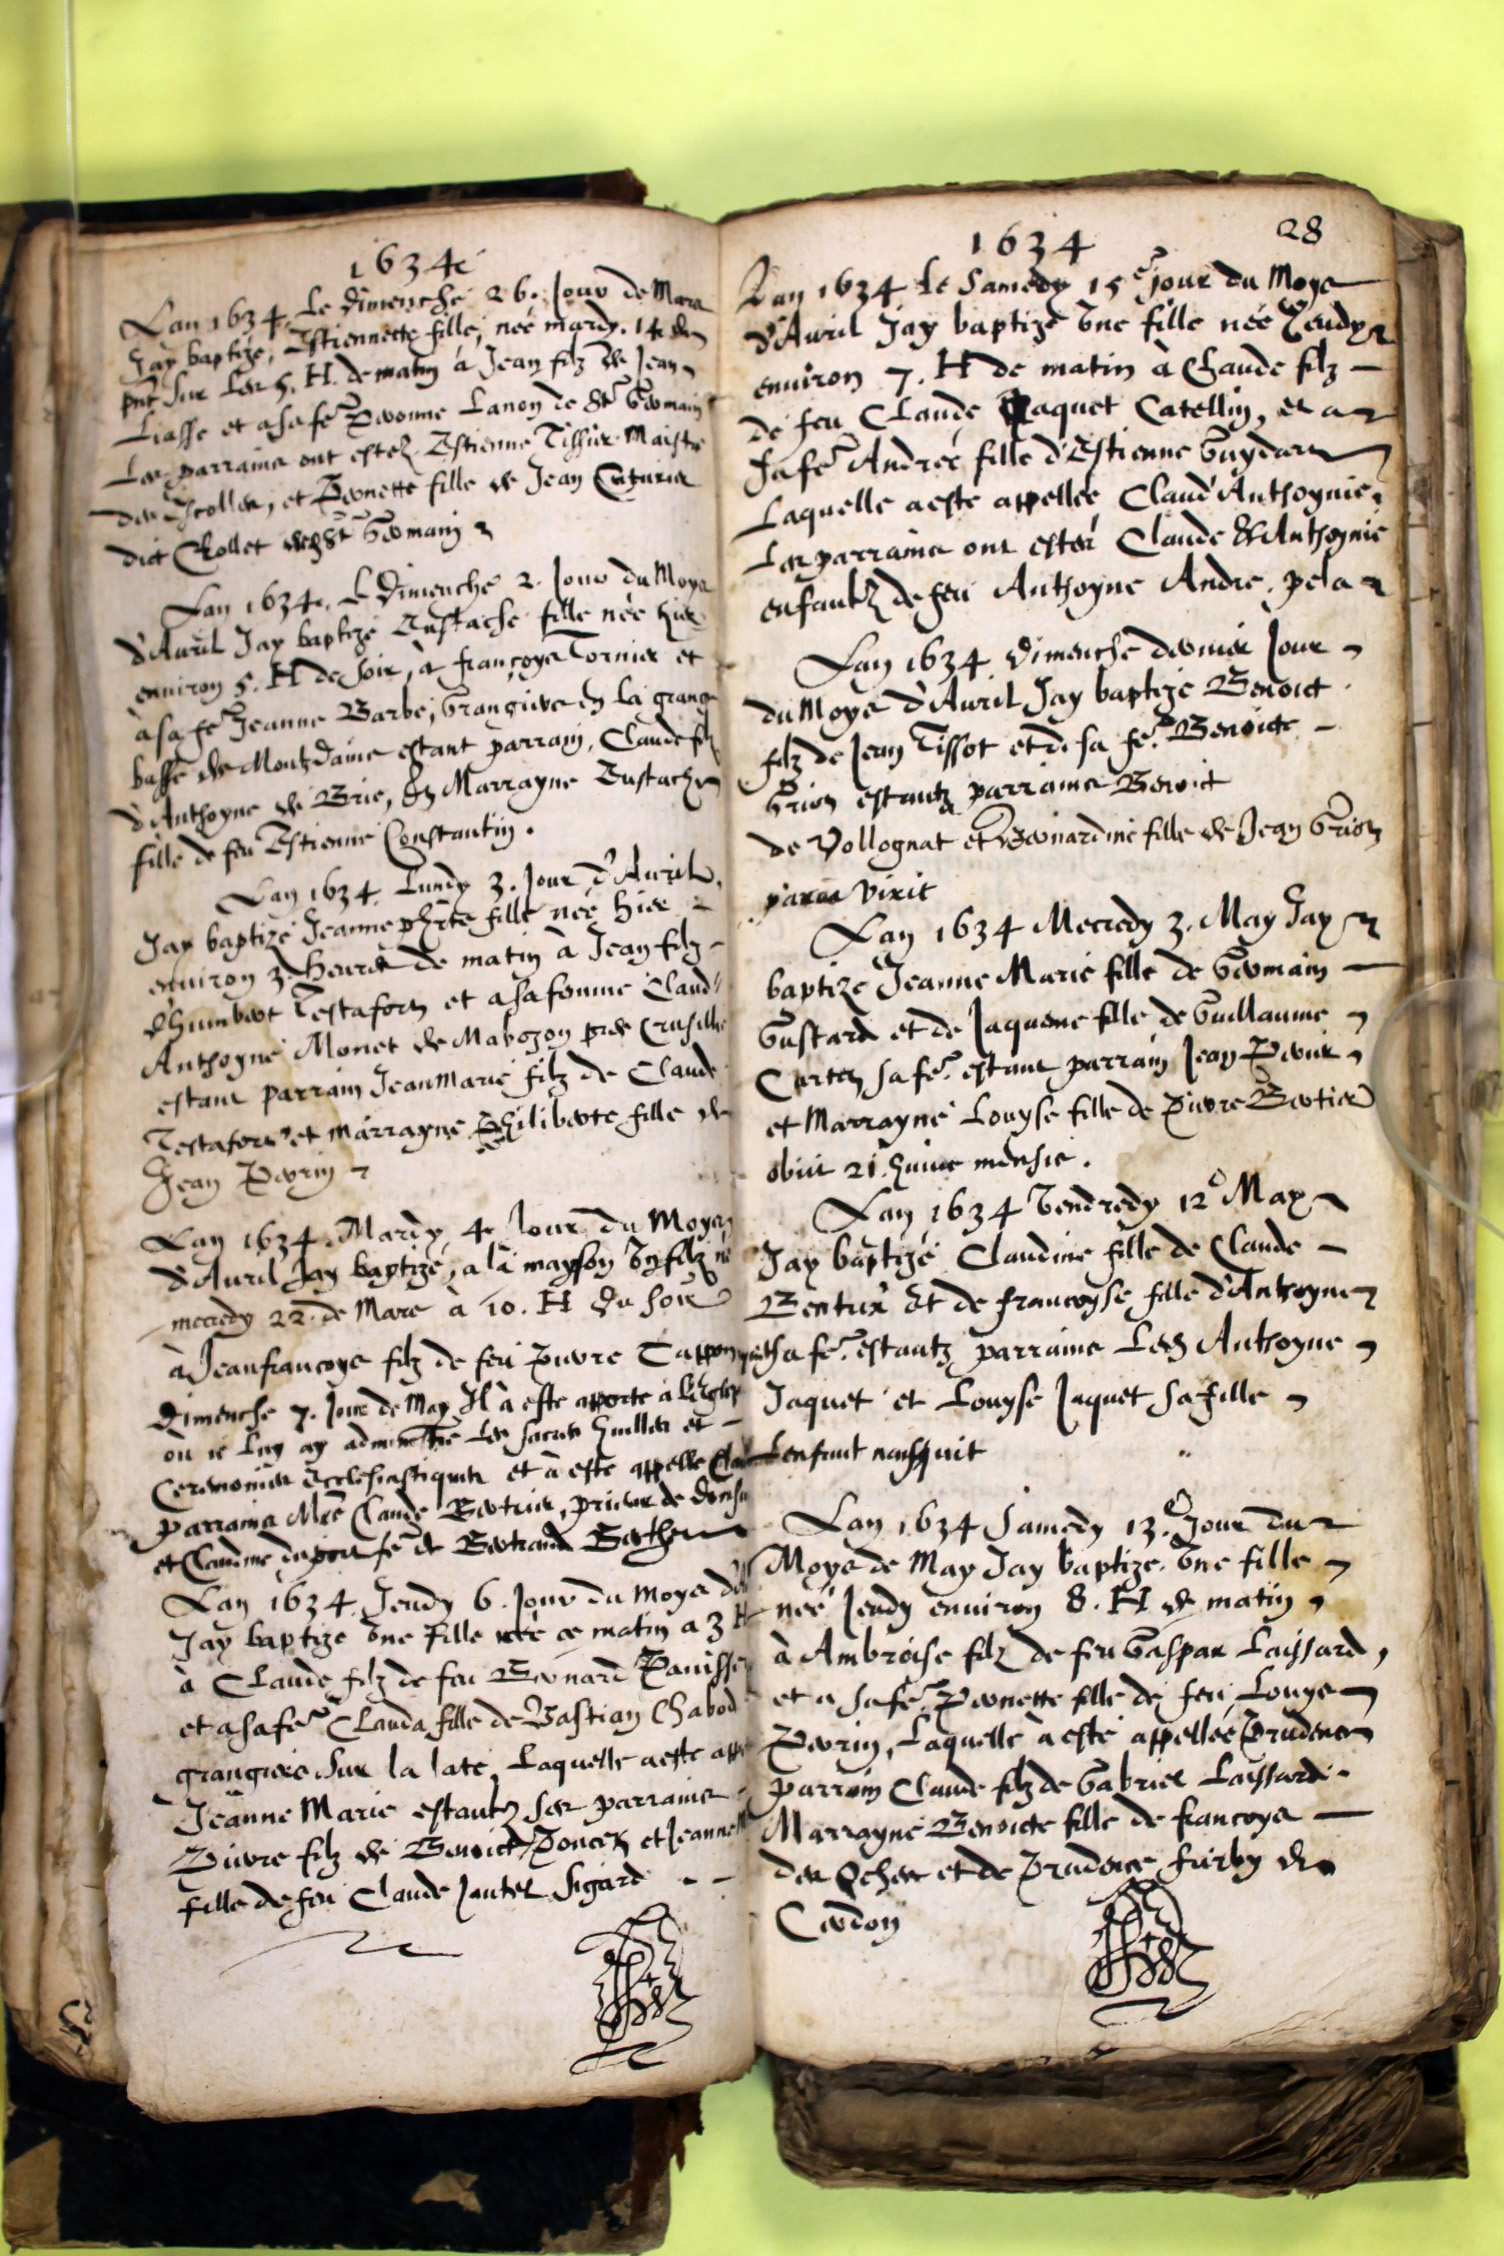 1634
Lan 1634. Le dimenche 26. Jour de Mars
Jay baptizé, Estiennette fille, neé mardy. 14. du
pnt sur les 5. H. de matin à Jean filz de Jean
Liasse et a sa fe Pernne Lanon de St Germain
Les parrains ont estez Estienne Tissier Maistre
des Escolles, et Pernette fille de Jean Cuturier
dict Rollet de St Germain
Lan 1634. Le Dimenche 2. Jour du Moys
d'Auril Jay baptizé Eustache fille neé hier
enuiron 5. H de soir, à françoys Tornier et
à sa fe Jeanne Barbe, Grangiers en la grange
basse de Montdaine estant parrain, Claude filz
d'Anthoyne de Brie, et Marrayne Eustache
fille de feu Estienne Constantin.
Lan 1634. Lundy 3. Jour d'Auril.
Jay baptizé Jeanne phrte fille neé hier
enuiron 3. heures de matin à Jean filz
d'humbert Testafort et a sa femme Claud'
Anthoyne Monet de Mabozon pres Crusille
estant parrain Jean Marie filz de Claude
Testafort et marrayne Philiberte fille de
Jean Perrin
Lan 1634. Mardy 4. Jour du Moys
d'Auril Jay baptizé, a la mayson Vn filz né
mecredy 22. de Mars à 10. H du soir
à Jeanfrancoys filz de feu Pierre Tappon
Dimenche 7. Jour de May Il à esté apporte à l'Eglise
où ie luy ay administre les sacres huilles et
Ceremonies Ecclesiastiques et à esté appelle
parrains Mre Claude Bertrier, prieur de
et Claudine dupont fe de Bertrand
Lan 1634. Jeudy 6. Jour du Moys
Jay baptizé Vne Fille neé ce matin a 3 H
à Claude filz de feu Bernard
et a sa fe Clauda fille de Bastian Chabod
grangiers sur la late, Laquelle a esté
Jeanne Marie estantz ses parrains
Pierre filz de Benoict Poncet et Jeanne
fille de feu Claude Jantel Sigard
1634
28
Lan 1634 Le Samedy 15e jour du Moys
d'Auril Jay baptizé Vne fille neé Jeudy
enuiron 7. H de matin à Claude filz
de feu Claude Paquet Catellin, et a
sa fe Andreé fille d'Estienne Guydard
Laquelle a esté appelleé Claud'Anthoynie,
Les parrains ont estez Claude & Anthoynie
enfantz de feu Anthoyne Andre. pela
Lan 1634 dimenche dernier Jour
du Moys d'Auril Jay baptizé Benoict
filz de Jean Tissot et de sa fe. Benoicte
Grion estantz parrains Benoict
de Vollognat et Bernardine fille de Jean Grion
parum vixit
Lan 1634 Mecredy 3. May Jay
baptizé Jeanne Marie fille de Germain
Gustard et de Jaquene fille de Guillaume
Curtet sa fe. estant parrain Jean Perrier
et Marrayne Louyse fille de Pierre Bertier
obiit 21. huius mensis.
Lan 1634 Vendredy 12e May
Jay baptizé Claudine fille de Claude
Bentux et de francoyse fille d'Anthoyne
sa fe. estantz parrains Led Anthoyne
Jaquet et Louyse Jaquet sa fille
Lenfant nasquit
Lan 1634 Samedy 13.e Jour du
Moys de May Jay baptizé. Vne fille
neé Jeudy enuiron 8. H de matin
à Ambroise filz de feu Gaspar Laissard,
et a sa fe. Pernette fille de feu Louys
Perrin, Laquelle à esté appelleé Prudence
parrain Claude filz de Gabriel Laissard
Marrayne Benoicte fille de francoys
des Eches et de Prudence furby de
Cerdon